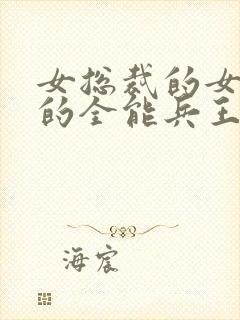 女总裁的女
的全能兵王
海宸